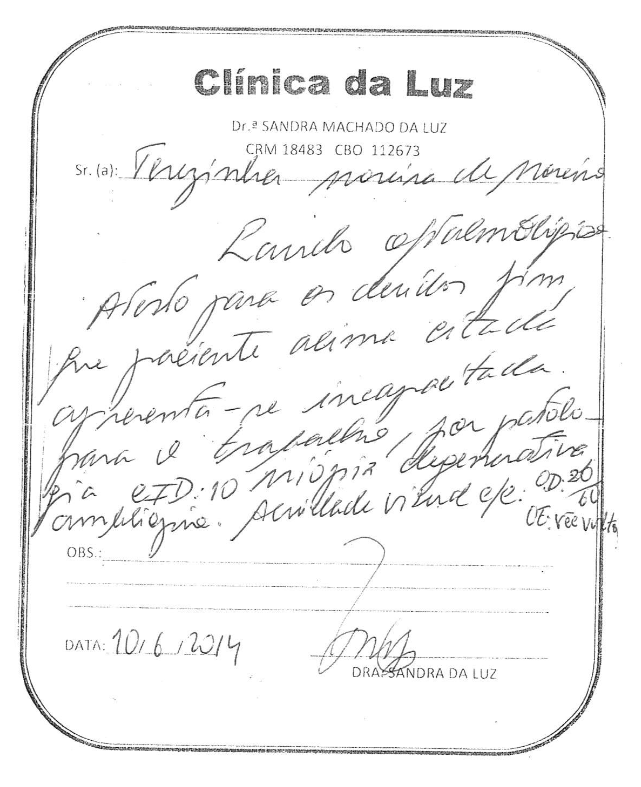 Clínica da Luz
Dr.ª SANDRA MACHADO DA LUZ
CRM 18483 CBO 112673
Sr. (a): Terezinha moreira de moreira
Laudo oftalmológico
Atesto para os devidos fins,
que paciente acima citada
apresenta-se incapacitada.
para o trabalho, por patolo-
gia CID:10 miópia degenerativa
ambliopia. Acuidade visual c/c: O.D. 20/60
OE: vê vulto
OBS.:
DATA: 10/6/2014
DRA. SANDRA DA LUZ